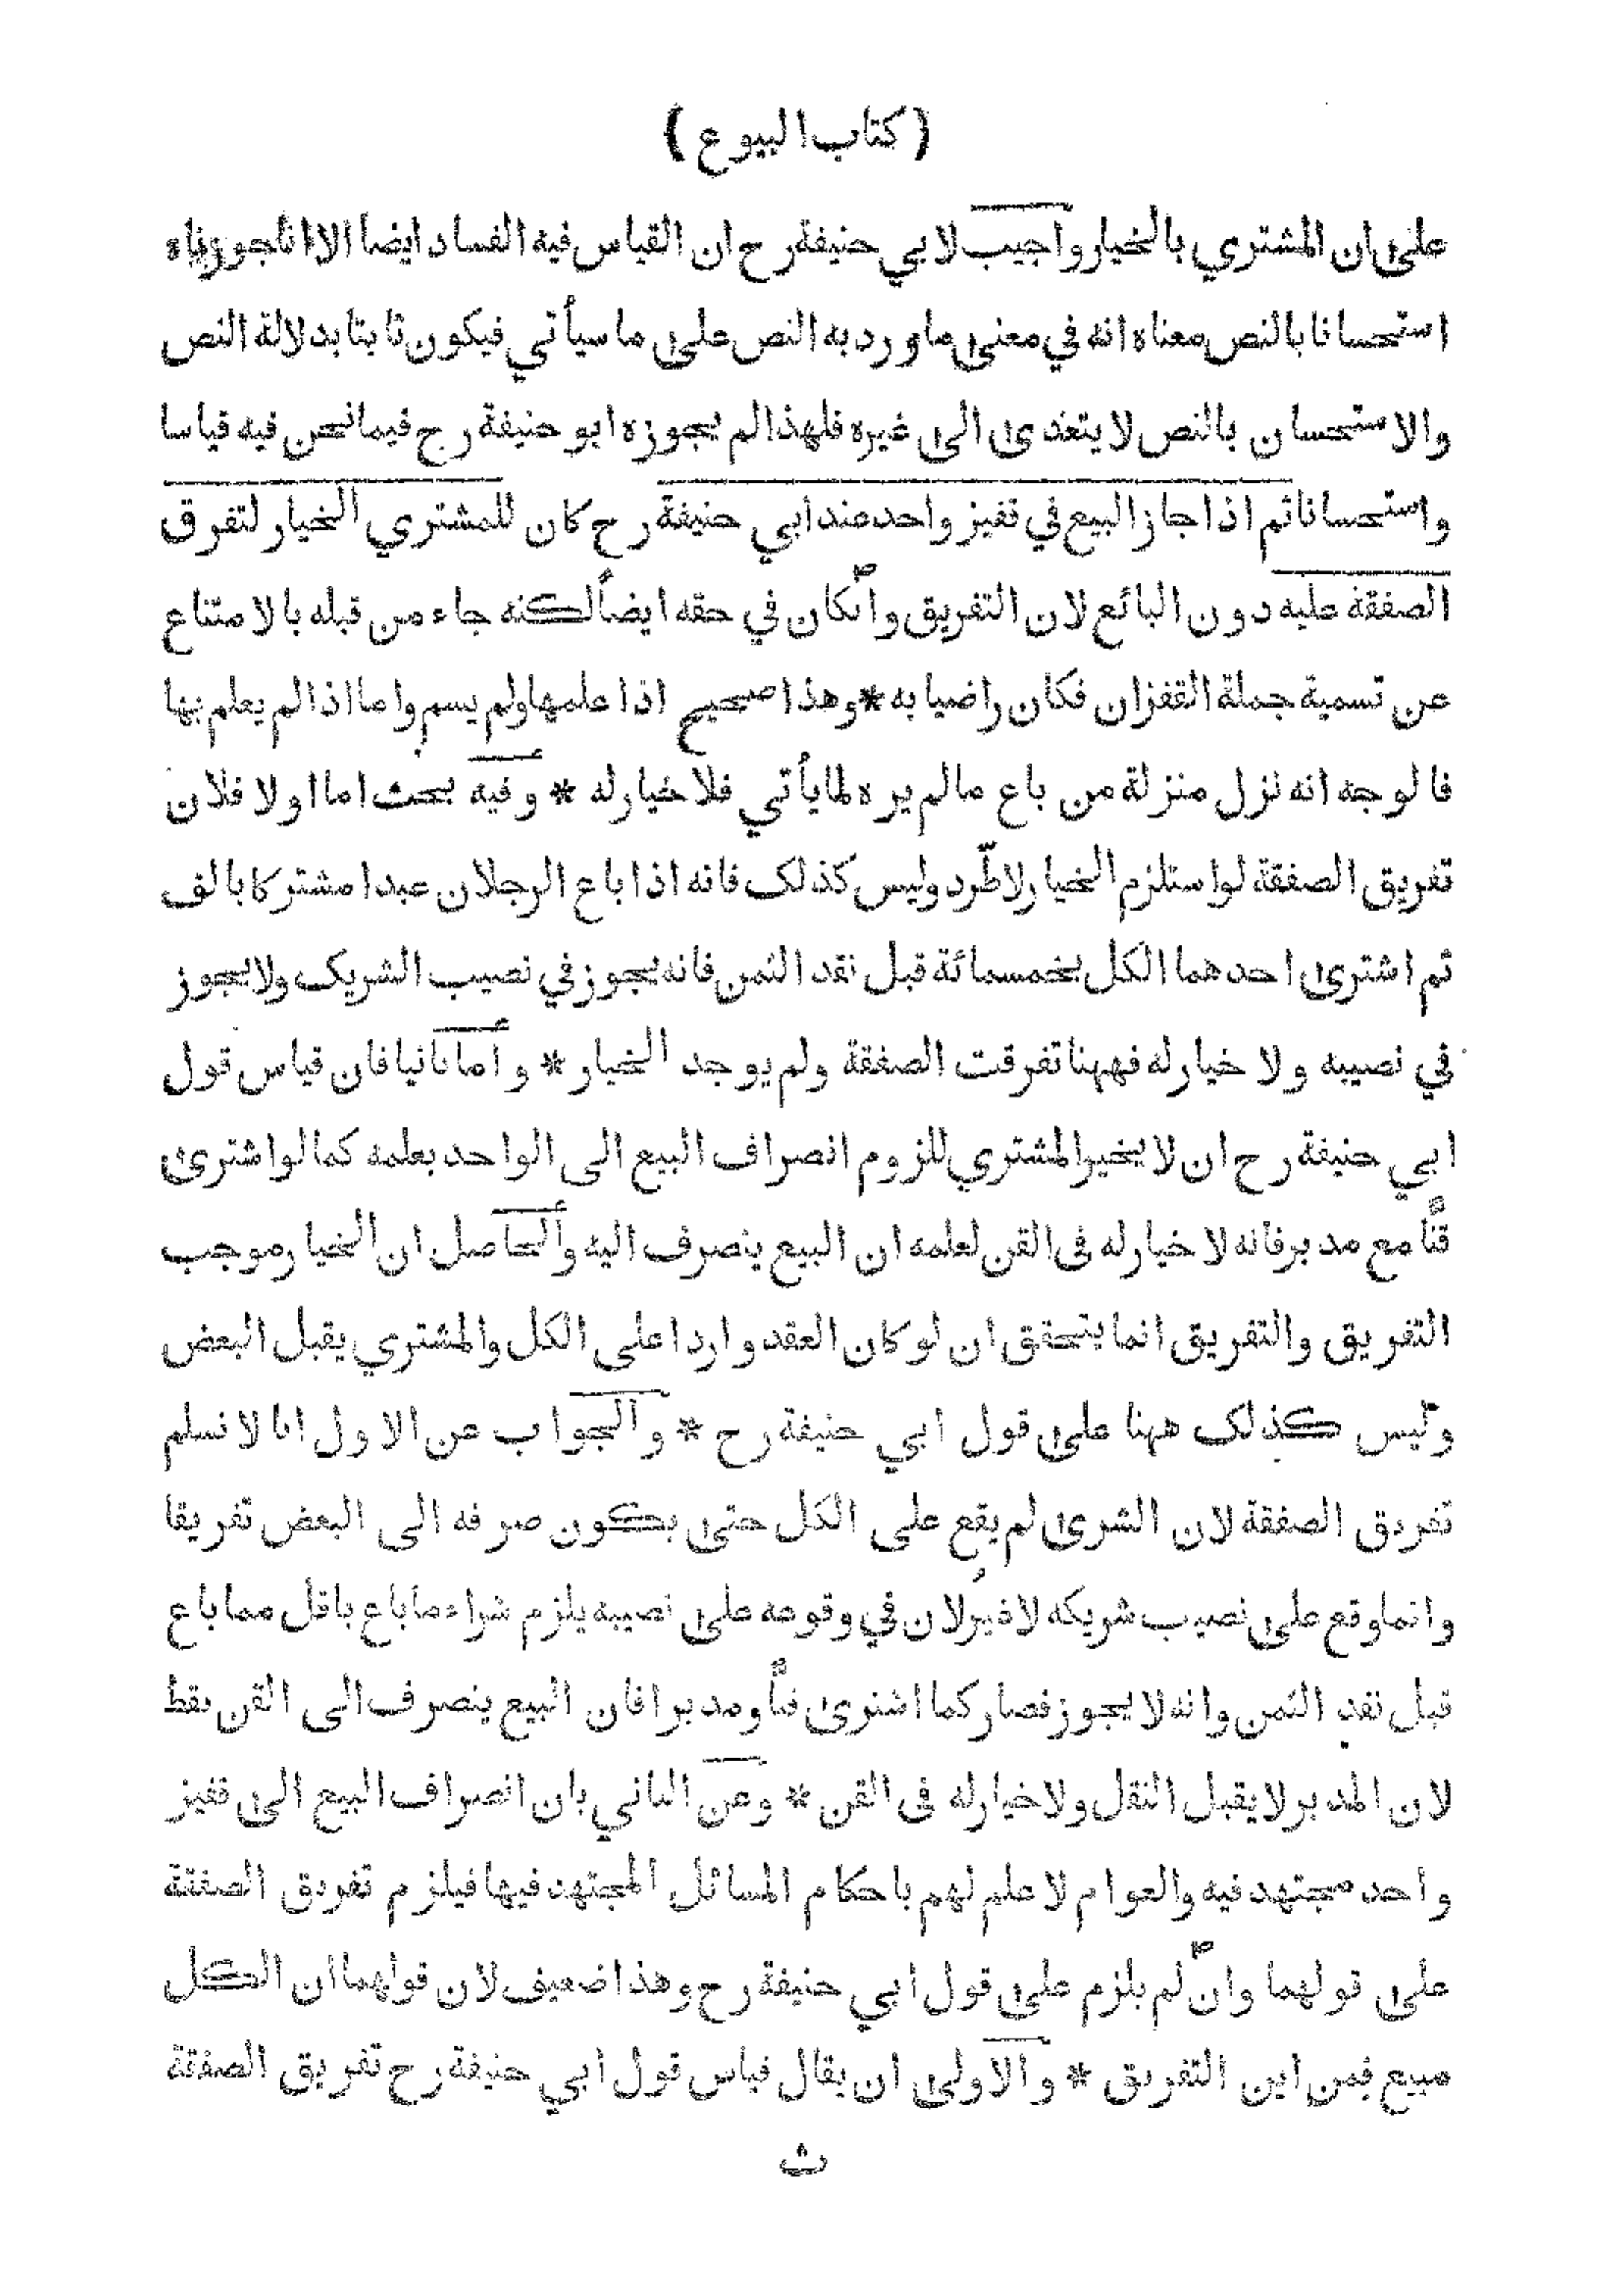 ( كتاب البيوع )
على ان المشتري بالخيار واجيب لابي حنيفة رح ان القياس فيه الفساد ايضا الا انا جوزناه
استحسانا بالنص معناه انه في معنى ما ورد به النص على ما سيأتي فيكون ثابتا بدلالة النص
والاستحسان بالنص لا يتعدى الى غيره فلهذا لم يجوزه ابو حنيفة رح فيما نحن فيه قياسا
واستحسانا ثم اذا جاز البيع في قفيز واحد عند ابي حنيفة رح كان للمشتري الخيار لتفرق
الصفقة عليه دون البائع لان التفريق وانكان في حقه ايضاً لكنه جاء من قبله بالامتناع
عن تسمية جملة القفزان فكان راضيا به * وهذا صحيح اذا علمها ولم يسم واما اذا لم يعلم بها
فالوجه انه نزل منزلة من باع مالم يره لما يأتي فلا خيار له * وفيه بحث اما اولا فلان
تفريق الصفقة لو استلزم الخيار لاطّرد وليس كذلك فانه اذا باع الرجلان عبدا مشتركا بالف
ثم اشترى احدهما الكل بخمسمائة قبل نقد الثمن فانه يجوز في نصيب الشريك ولا يجوز
في نصيبه ولا خيار له فههنا تفرقت الصفقة ولم يوجد الخيار * واما ثانيا فان قياس قول
ابي حنيفة رح ان لا يخير المشتري للزوم انصراف البيع الى الواحد بعلمه كما لو اشترى
قنًّا مع مدبر فانه لا خيار له فى القن لعلمه ان البيع ينصرف اليه والحاصل ان الخيار موجب
التفريق والتفريق انما يتحقق ان لو كان العقد واردا على الكل والمشتري يقبل البعض
وليس كذلك ههنا على قول ابي حنيفة رح * والجواب عن الاول انا لا نسلم
تفريق الصفقة لان الشرى لم يقع على الكل حتى يكون صرفه الى البعض تفريقا
وانما وقع على نصيب شريكه لا غيرُ لان في وقوعه على نصيبه يلزم شراء ما باع باقل مما باع
قبل نقد الثمن وانه لا يجوز فصار كما اشترى قنًّا ومدبرا فان البيع ينصرف الى القن فقط
لان المدبر لا يقبل النقل ولا خيار له فى القن * وعن الثاني بان انصراف البيع الى قفيز
واحد مجتهد فيه والعوام لا علم لهم باحكام المسائل المجتهد فيها فيلزم تفريق الصفقة
على قولهما وان لم يلزم على قول ابي حنيفة رح وهذا ضعيف لان قولهما ان الكل
مبيع فمن اين التفريق * والاولى ان يقال قياس قول ابي حنيفة رح تفريق الصفقة
ث